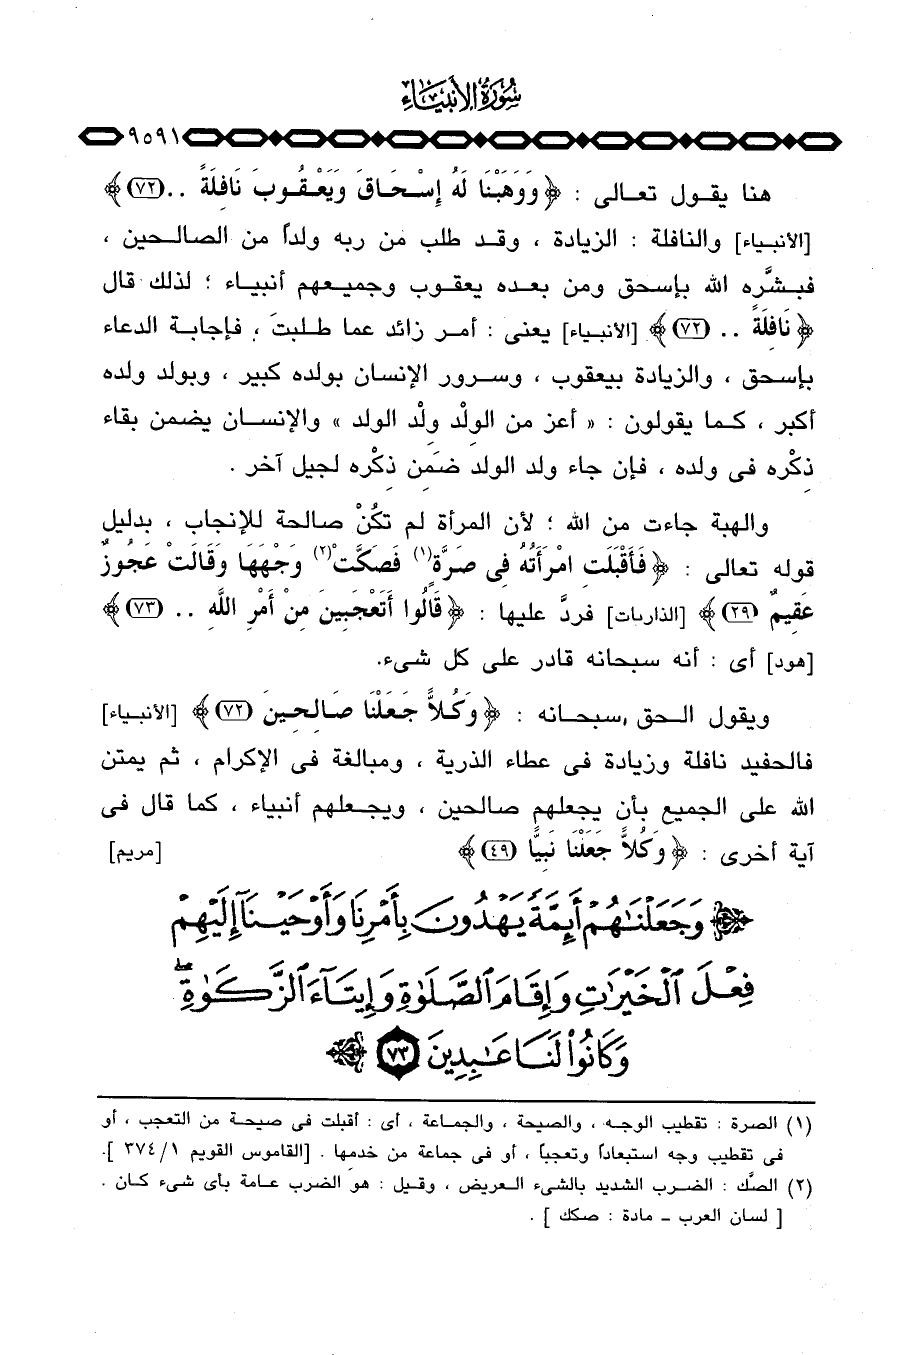 سُورَةُ الأَنبِيَاء
٩٥٩١
هنا يقول تعالى : ﴿ وَوَهَبْنَا لَهُ إِسْحَاقَ وَيَعْقُوبَ نَافِلَةً .. (٧٢) ﴾
[الأنبياء] والنافلة : الزيادة ، وقد طلب من ربه ولداً من الصالحين ،
فبشَّره الله بإسحق ومن بعده يعقوب وجميعهم أنبياء ؛ لذلك قال
﴿ نَافِلَةً .. (٧٢) ﴾ [الأنبياء] يعنى : أمر زائد عما طلبت ، فإجابة الدعاء
بإسحق ، والزيادة بيعقوب ، وسرور الإنسان بولده كبير ، وبولد ولده
أكبر ، كما يقولون : « أعز من الولْد ولْد الولد » والإنسان يضمن بقاء
ذكْره فى ولده ، فإن جاء ولد الولد ضَمن ذكْره لجيل آخر .
والهبة جاءت من الله ؛ لأن المرأة لم تكُنْ صالحة للإنجاب ، بدليل
قوله تعالى : ﴿ فَأَقْبَلَتِ امْرَأَتُهُ فِى صَرَّةٍ(١) فَصَكَّتْ(٢) وَجْهَهَا وَقَالَتْ عَجُوزٌ
عَقِيمٌ (٢٩) ﴾ [الذاريات] فردَّ عليها : ﴿ قَالُوا أَتَعْجَبِينَ مِنْ أَمْرِ اللَّهِ .. (٧٣) ﴾
[هود] أى : أنه سبحانه قادر على كل شىء.
ويقول الحق سبحانه : ﴿ وَكُلاًّ جَعَلْنَا صَالِحِينَ (٧٢) ﴾ [الأنبياء]
فالحفيد نافلة وزيادة فى عطاء الذرية ، ومبالغة فى الإكرام ، ثم يمتن
الله على الجميع بأن يجعلهم صالحين ، ويجعلهم أنبياء ، كما قال فى
آية أخرى : ﴿ وَكُلاًّ جَعَلْنَا نَبِيًّا (٤٩) ﴾ [مريم]
﴿ وَجَعَلْنَٰهُمْ أَئِمَّةً يَهْدُونَ بِأَمْرِنَا وَأَوْحَيْنَآ إِلَيْهِمْ
فِعْلَ ٱلْخَيْرَٰتِ وَإِقَامَ ٱلصَّلَوٰةِ وَإِيتَآءَ ٱلزَّكَوٰةِ ۖ
وَكَانُوا۟ لَنَا عَٰبِدِينَ ٧٣ ﴾
(١) الصرة : تقطيب الوجه ، والصيحة ، والجماعة ، أى : أقبلت فى صيحة من التعجب ، أو
فى تقطيب وجه استبعاداً وتعجباً ، أو فى جماعة من خدمها . [القاموس القويم ٣٧٤/١ ].
(٢) الصكَّ : الضرب الشديد بالشىء العريض ، وقيل : هو الضرب عامة بأى شىء كان .
[ لسان العرب - مادة : صكك ] .